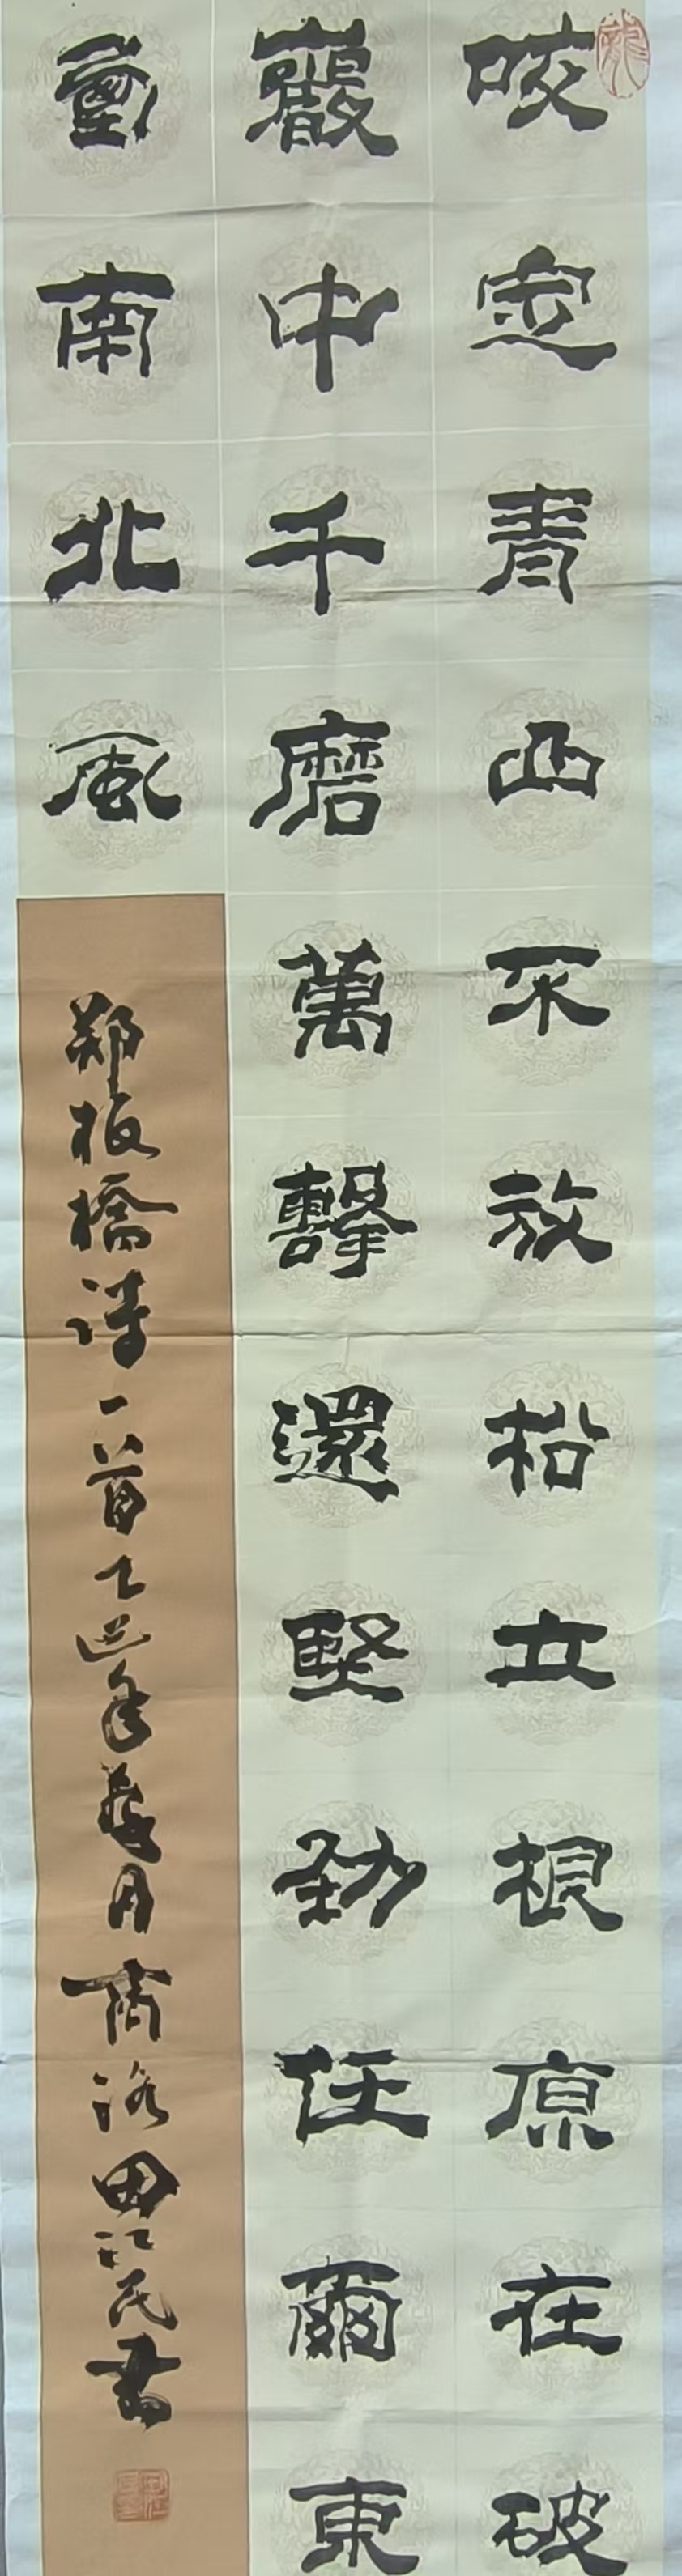 龍
咬定青山不放松立根原在破
巖中千磨萬擊還堅勁任爾東
南北風
郑板橋诗一首乙巳年月商洛田江民書